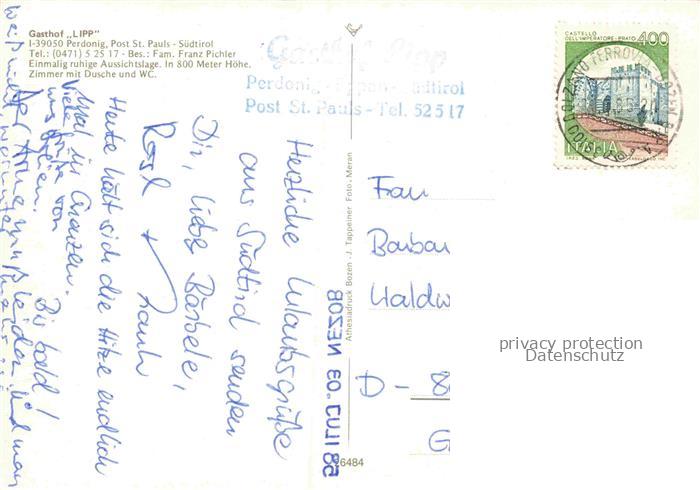 Gasthof „LIPP"
I-39050 Perdonig, Post St. Pauls - Südtirol
Tel.: (0471) 5 25 17 - Bes.: Fam. Franz Pichler
Einmalig ruhige Aussichtslage. In 800 Meter Höhe.
Zimmer mit Dusche und WC.
Gasthof Lipp
Perdonig - Eppan - Südtirol
Post St. Pauls - Tel. 52517
Herzliche Urlaubsgrüße
aus Südtirol senden
Dir, liebe Bärbele,
Rosl +
Heute hält sich die Hitze endlich
mal in Grenzen.
Viele Grüße von
Bis bald!
Athesiadruck Bozen - J. Tappeiner Foto, Meran
BOZEN 03. JULI 86
6484
CASTELLO
DELL'IMPERATORE - PRATO
400
ITALIA
BOLZANO FERROVIA
Frau
Barbar
Waldw
D - 8
G
privacy protection
Datenschutz